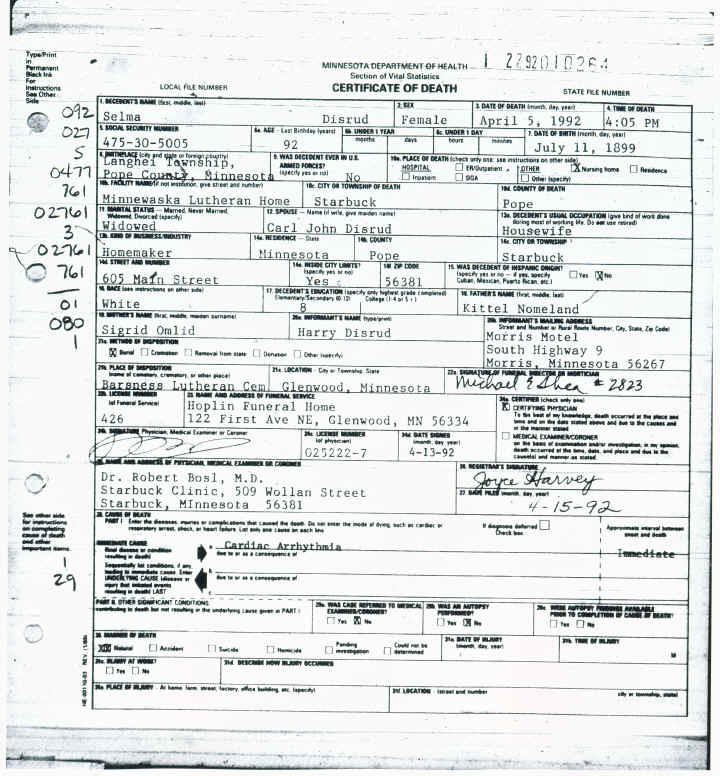 Type/Print
in
Permanent
Black Ink
For
Instructions
See Other
Side
MINNESOTA DEPARTMENT OF HEALTH
Section of Vital Statistics
CERTIFICATE OF DEATH
LOCAL FILE NUMBER
STATE FILE NUMBER
092
027
5
0477
761
02761
3
02761
761
01
080
1
1. DECEDENT'S NAME (first, middle, last)
Selma Disrud
2. SEX
Female
3. DATE OF DEATH (month, day, year)
April 5, 1992
4. TIME OF DEATH
4:05 PM
5. SOCIAL SECURITY NUMBER
475-30-5005
6a. AGE - Last Birthday (years)
92
6b. UNDER 1 YEAR
months days
6c. UNDER 1 DAY
hours minutes
7. DATE OF BIRTH (month, day, year)
July 11, 1899
8. BIRTHPLACE (city and state or foreign country)
Langhei Township,
Pope County, Minnesota
9. WAS DECEDENT EVER IN U.S.
ARMED FORCES?
(specify yes or no)
No
10a. PLACE OF DEATH (check only one: see instructions on other side)
HOSPITAL
Inpatient
ER/Outpatient
DOA
OTHER
X Nursing home
Residence
Other (specify)
10b. FACILITY NAME (if not institution, give street and number)
Minnewaska Lutheran Home
10c. CITY OR TOWNSHIP OF DEATH
Starbuck
10d. COUNTY OF DEATH
Pope
11. MARITAL STATUS - Married, Never Married,
Widowed, Divorced (specify)
Widowed
12. SPOUSE - Name (if wife, give maiden name)
Carl John Disrud
13a. DECEDENT'S USUAL OCCUPATION (give kind of work done
during most of working life. Do not use retired)
Housewife
13b. KIND OF BUSINESS/INDUSTRY
Homemaker
14a. RESIDENCE - State
Minnesota
14b. COUNTY
Pope
14c. CITY OR TOWNSHIP
Starbuck
14d. STREET AND NUMBER
605 Main Street
14e. INSIDE CITY LIMITS?
(specify yes or no)
Yes
14f ZIP CODE
56381
15. WAS DECEDENT OF HISPANIC ORIGIN?
(specify yes or no - if yes, specify
Cuban, Mexican, Puerto Rican, etc.)
Yes X No
16. RACE (see instructions on other side)
White
17. DECEDENT'S EDUCATION (specify only highest grade completed)
Elementary/Secondary (0-12) College (1-4 or 5+)
8
18. FATHER'S NAME (first, middle, last)
Kittel Nomeland
19. MOTHER'S NAME (first, middle, maiden surname)
Sigrid Omlid
20a. INFORMANT'S NAME (type/print)
Harry Disrud
20b. INFORMANT'S MAILING ADDRESS
Street and Number or Rural Route Number, City, State, Zip Code)
Morris Motel
South Highway 9
Morris, Minnesota 56267
21a. METHOD OF DISPOSITION
X Burial Cremation Removal from state Donation Other (specify)
21b. PLACE OF DISPOSITION
(name of cemetery, crematory, or other place)
Barsness Lutheran Cem.
21c. LOCATION - City or Township, State
Glenwood, Minnesota
22a. SIGNATURE OF FUNERAL DIRECTOR OR MORTICIAN
Michael E Shea #2823
22b. LICENSE NUMBER
(of Funeral Service)
426
23. NAME AND ADDRESS OF FUNERAL SERVICE
Hoplin Funeral Home
122 First Ave NE, Glenwood, MN 56334
24a. CERTIFIER (check only one)
X CERTIFYING PHYSICIAN
To the best of my knowledge, death occurred at the place and
time and on the date stated above and due to the causes and
in the manner stated
MEDICAL EXAMINER/CORONER
on the basis of examination and/or investigation, in my opinion,
death occurred at the time, date, and place and due to the
cause(s) and manner as stated.
24b. SIGNATURE Physician, Medical Examiner or Coroner
24c. LICENSE NUMBER
(of physician)
025222-7
24d. DATE SIGNED
(month, day, year)
4-13-92
25. NAME AND ADDRESS OF PHYSICIAN, MEDICAL EXAMINER OR CORONER
Dr. Robert Bosl, M.D.
Starbuck Clinic, 509 Wollan Street
Starbuck, MInnesota 56381
26. REGISTRAR'S SIGNATURE
Joyce Harvey
27. DATE FILED (month, day, year)
4-15-92
See other side
for instructions
on completing
cause of death
and other
important items.
1
29
28. CAUSE OF DEATH
PART I Enter the diseases, injuries or complications that caused the death. Do not enter the mode of dying, such as cardiac or
respiratory arrest, shock, or heart failure. List only one cause on each line.
If diagnosis deferred
Check box
Approximate interval between
onset and death
IMMEDIATE CAUSE
final disease or condition
resulting in death)
a. Cardiac Arrhythmia
due to or as a consequence of
Immediate
Sequentially list conditions, if any,
leading to immediate cause. Enter
UNDERLYING CAUSE (disease or
injury that initiated events
resulting in death) LAST
b.
due to or as a consequence of
c.
PART II. OTHER SIGNIFICANT CONDITIONS
contributing to death but not resulting in the underlying cause given in PART I
29a. WAS CASE REFERRED TO MEDICAL
EXAMINER/CORONER?
Yes X No
29b. WAS AN AUTOPSY
PERFORMED?
Yes X No
29c. WERE AUTOPSY FINDINGS AVAILABLE
PRIOR TO COMPLETION OF CAUSE OF DEATH?
Yes No
30. MANNER OF DEATH
XX Natural Accident Suicide Homicide
Pending
investigation
Could not be
determined
31a. DATE OF INJURY
(month, day, year)
31b. TIME OF INJURY
M
31c. INJURY AT WORK?
Yes No
31d. DESCRIBE HOW INJURY OCCURRED
31e. PLACE OF INJURY - At home, farm, street, factory, office building, etc. (specify)
31f. LOCATION - (street and number
city or township, state)